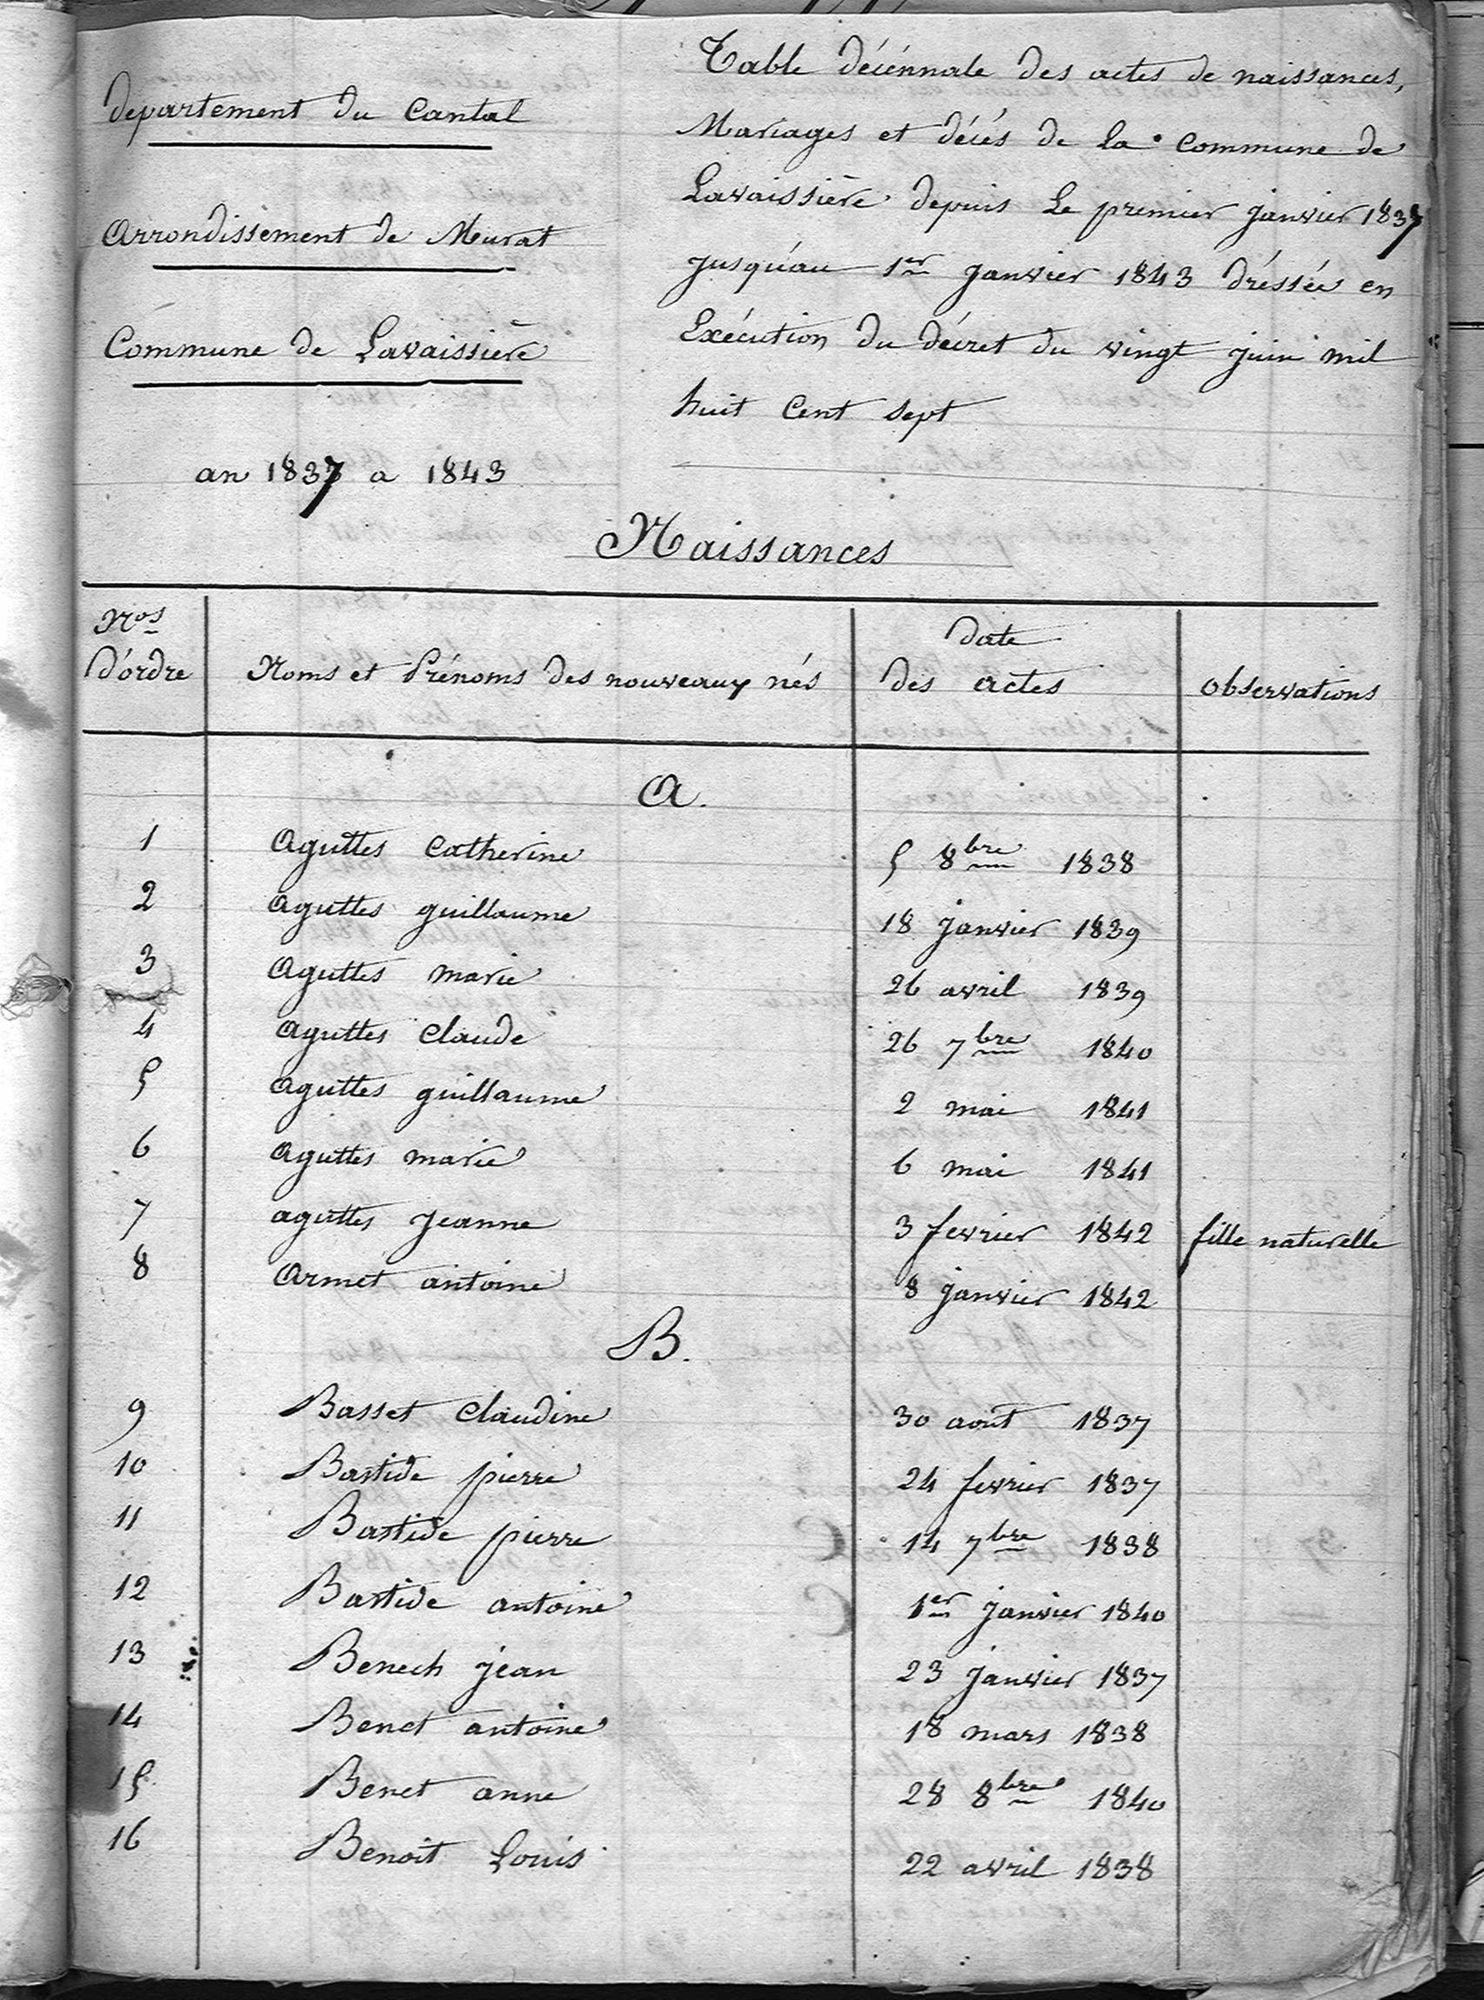 departement du Cantal
arrondissement de Murat
Commune de Lavaissière
an 1837 a 1843
Table décénnale des actes de naissances,
Mariages et décés de la commune de
Lavaissière depuis Le premier janvier 1837
jusqu'au 1er janvier 1843 dréssée en
Exécution du décret du vingt juin mil
huit Cent sept
Naissances
Nos d'ordre
Noms et Prénoms des nouveaux nés
date des actes
observations
A.
1 Aguttes Catherine 5 8bre 1838
2 Aguttes guillaume 18 janvier 1839
3 Aguttes marie 26 avril 1839
4 Aguttes Claude 26 7bre 1840
5 Aguttes guillaume 2 mai 1841
6 Aguttes marie 6 mai 1841
7 aguttes jeanne 3 fevrier 1842 fille naturelle
8 Armet antoine 8 janvier 1842
B.
9 Basset Claudine 30 aout 1837
10 Bastide pierre 24 fevrier 1837
11 Bastide pierre 14 7bre 1838
12 Bastide antoine 1er janvier 1840
13 Benech jean 23 janvier 1837
14 Benet antoine 18 mars 1838
15 Benet anne 28 8bre 1840
16 Benoit Louis 22 avril 1838